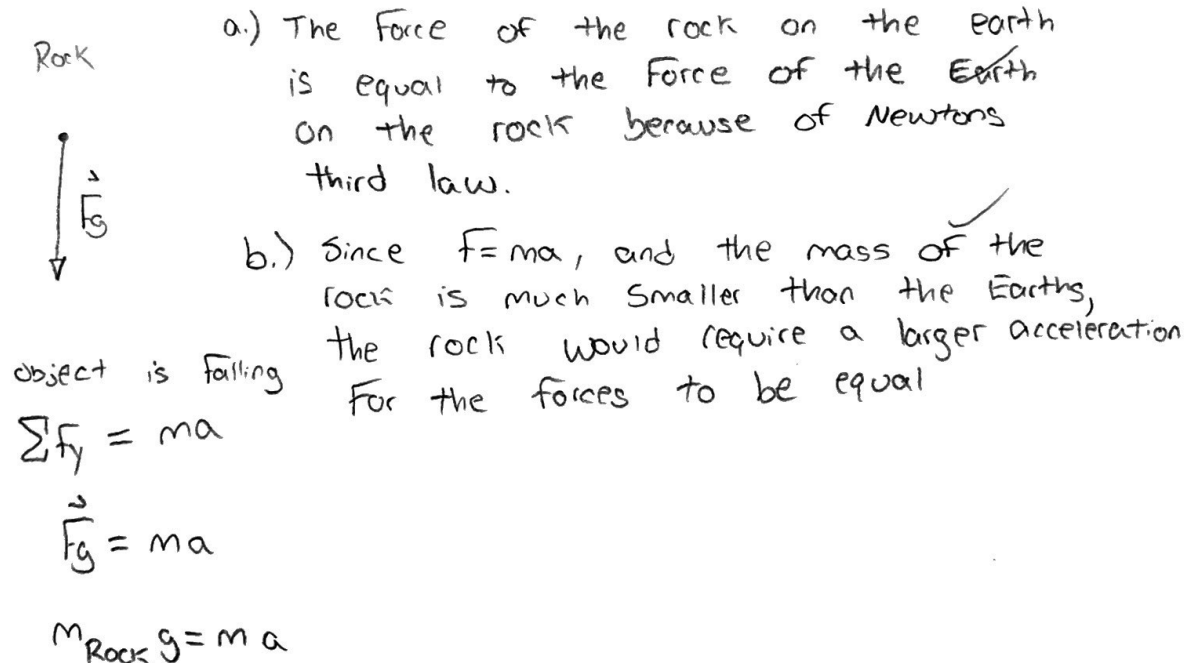 Rock
F⃗g
object is falling
ΣFy = ma
F⃗g = ma
mRock g = ma
a.) The Force of the rock on the earth
is equal to the Force of the Earth
on the rock because of Newtons
third law.
b.) Since F=ma, and the mass of the
rock is much smaller than the Earths,
the rock would require a larger acceleration
For the forces to be equal